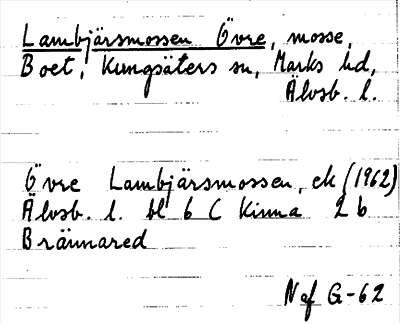 Lambjärsmossen Övre, mosse,
Boet, Kungsäters sn, Marks hd,
Älvsb. l.
Övre Lambjärsmossen, ek (1962)
Älvsb. l. bl 6 C Kinna 2 b
Brännared
Naf G-62